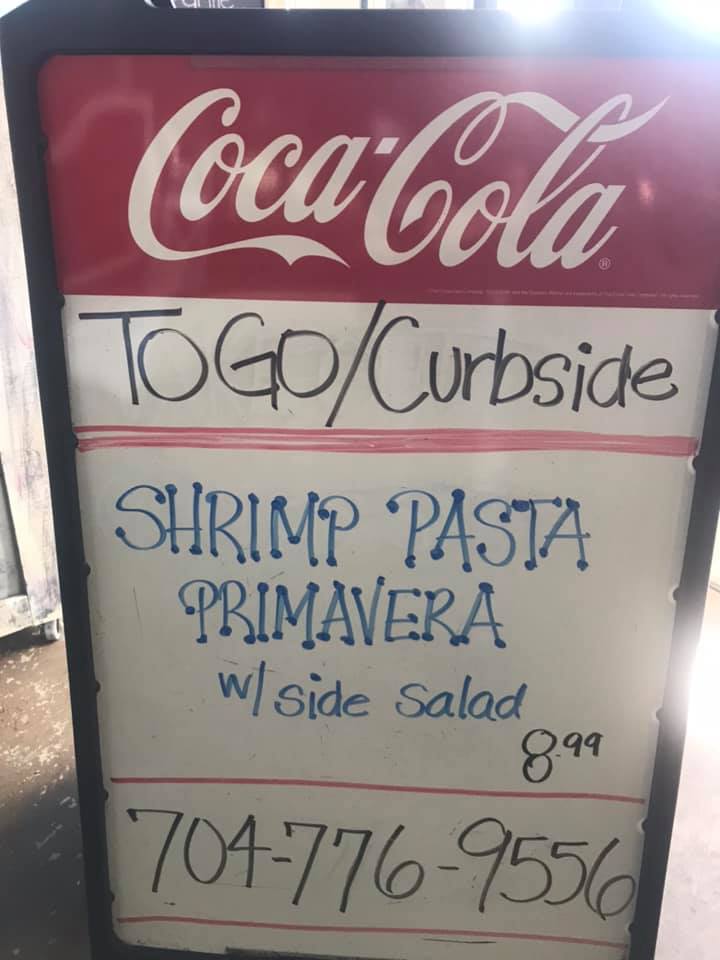 Coca-Cola®
TO GO/Curbside
SHRIMP PASTA
PRIMAVERA
w/ side salad
8.99
704-776-9556